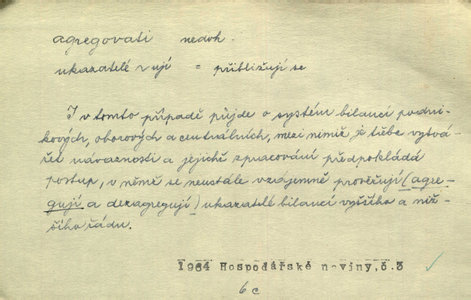 agregovati nedok.
ukazatelé zují = přibližují se
I v tomto případě půjde o systém bilancí podni-
kových, oborových a centrálních, mezi nimiž je třeba vytvá-
řet návaznosti a jejichž zpracování předpokládá
postup, v němž se neustále vzájemně prověřují (agre-
gují a dezagregují) ukazatelé bilancí vyššího a niž-
šího řádu.
1964 Hospodářské noviny,č.3
6c